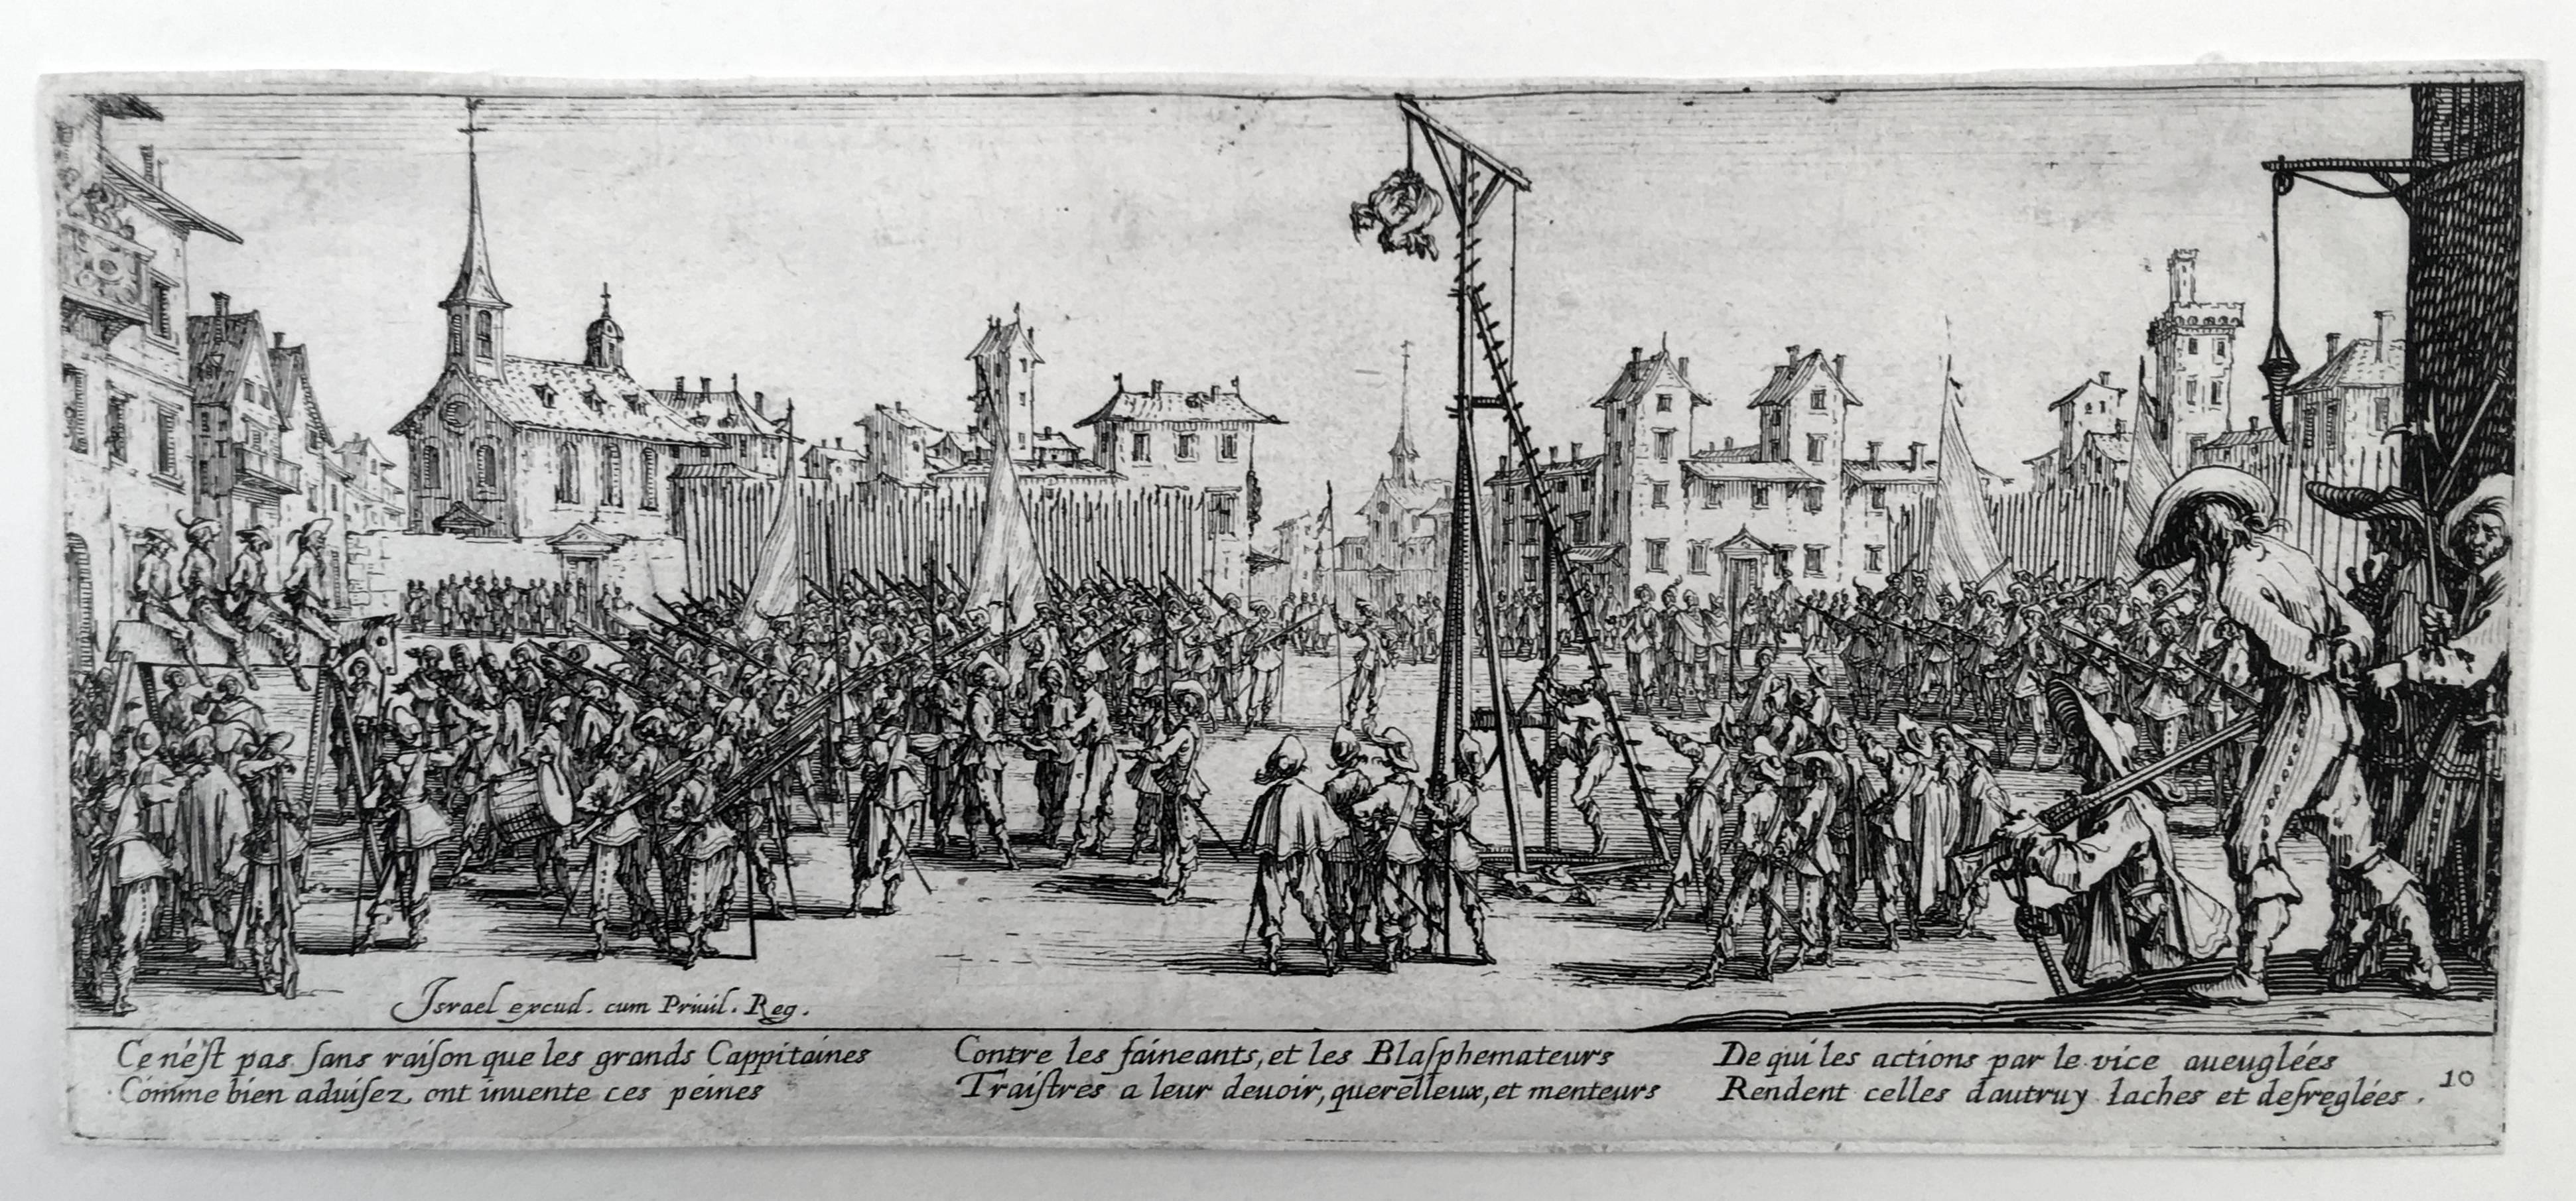 Israel excud. cum Priuil. Reg.
Ce n'éſt pas ſans raiſon que les grands Cappitaines
Comme bien aduiſez, ont inuente ces peines
Contre les faineants, et les Blaſphemateurs
Traiſtres a leur deuoir, querelleux, et menteurs
De qui les actions par le vice aueuglées
Rendent celles dautruy laches et deſreglées.
10